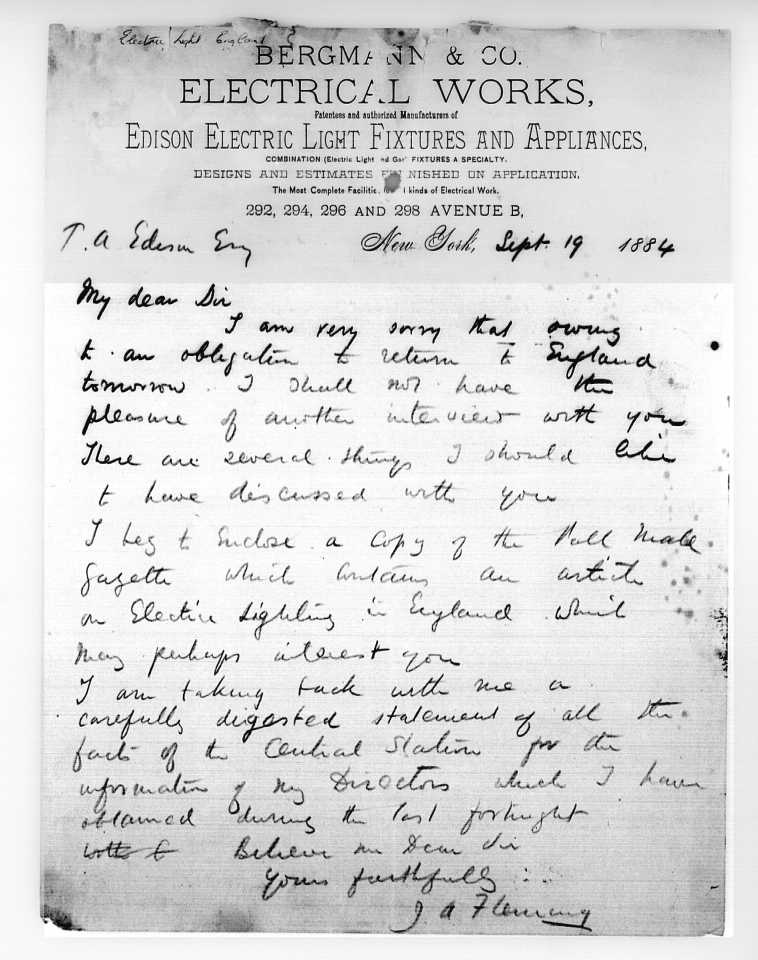 Electric Light England
BERGMANN & CO.
ELECTRICAL WORKS,
Patentees and authorized Manufacturers of
EDISON ELECTRIC LIGHT FIXTURES AND APPLIANCES,
COMBINATION (Electric Light and Gas) FIXTURES A SPECIALTY.
DESIGNS AND ESTIMATES FURNISHED ON APPLICATION.
The Most Complete Facilities for all kinds of Electrical Work.
292, 294, 296 AND 298 AVENUE B,
T. A Edison Esq
New York, Sept. 19 1884
My dear Sir
I am very sorry that owing
to an obligation to return to England
tomorrow I shall not have the
pleasure of another interview with you
There are several things I should like
to have discussed with you
I beg to Enclose a Copy of the Pall Mall
Gazette which contains an article
on Electric Lighting in England which
may perhaps interest you
I am taking back with me a
carefully digested statement of all the
facts of the Central Station for the
information of my Directors which I have
obtained during the last fortnight
Believe me Dear Sir
Yours faithfully
J A Fleming